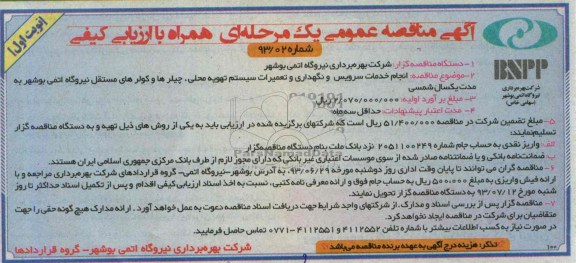 آگهی مناقصه عمومی یک مرحله‌ای همراه با ارزیابی کیفی
(نوبت اول)
شماره ۹۳/۰۲
BNPP
شرکت بهره‌برداری
نیروگاه اتمی بوشهر
(سهامی خاص)
۱-دستگاه مناقصه گزار: شرکت بهره‌برداری نیروگاه اتمی بوشهر
۲-موضوع مناقصه: انجام خدمات سرویس و نگهداری و تعمیرات سیستم تهویه محلی، چیلر ها و کولر های مستقل نیروگاه اتمی بوشهر به
مدت یکسال شمسی
۳- مبلغ بر آورد اولیه:
۴- مدت اعتبار پیشنهادات: حداقل سه ماه
۵- مبلغ تضمین شرکت در مناقصه ۵۱/۴۰۰/۰۰۰ ریال است که شرکتهای برگزیده شده در ارزیابی باید به یکی از روش های ذیل تهیه و به دستگاه مناقصه گزار
تسلیم‌نمایند:
الف: واریز نقدی به حساب جام شماره ۲۰۵۱۱۰۰۲۴۹ نزد بانک ملت بنام دستگاه مناقصه‌گزار
ب: ضمانت‌نامه بانکی و یا ضمانتنامه صادر شده از سوی موسسات اعتباری غیر بانکی که دارای مجوز لازم از طرف بانک مرکزی جمهوری اسلامی ایران هستند.
۶- مناقصه گران می توانند تا پایان وقت اداری روز دوشنبه مورخه ۹۳/۰۶/۲۹ به آدرس بوشهر-نیروگاه اتمی- گروه قراردادهای شرکت بهره‌برداری مراجعه و با
ارائه فیش واریزی به مبلغ ۵۰۰/۰۰۰ ریال به حساب جام فوق و ارائه معرفی نامه کتبی، نسبت به اخذ اسناد ارزیابی کیفی اقدام و پس از تکمیل اسناد حداکثر تا روز
شنبه مورخ ۹۳/۰۷/۱۲ به دستگاه مناقصه گزار تحویل نمایند.
۷- مناقصه گزار پس از بررسی اسناد و مدارک، از شرکتهای واجد شرایط جهت دریافت اسناد مناقصه دعوت به عمل خواهد آورد. ارائه مدارک هیچ گونه حقی را جهت
متقاضیان برای شرکت در مناقصه ایجاد نخواهد کرد.
در صورت نیاز به کسب اطلاعات بیشتر با شماره تلفن ۴۱۱۲۵۵۲ و ۴۱۱۲۵۵۱-۰۷۷۱ تماس حاصل فرمایید.
تذکر: هزینه درج آگهی به عهده برنده مناقصه می‌باشد
شرکت بهره‌برداری نیروگاه اتمی بوشهر- گروه قراردادها
۱۰۰